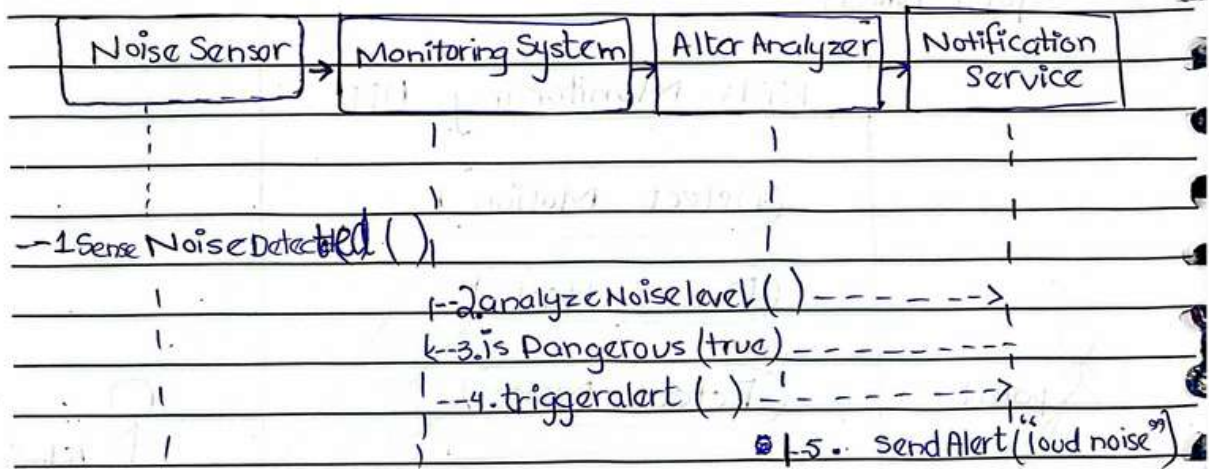 Noise Sensor Monitoring System Alter Analyzer Notification
Service
--1 Sense NoiseDetected ( )
|--2.analyzeNoiselevel ( ) - - - - - ->
k--3.is Dangerous (true) - - - - - -
|--4.triggeralert ( ). - - - - - ->
|-5. SendAlert (“loud noise”)